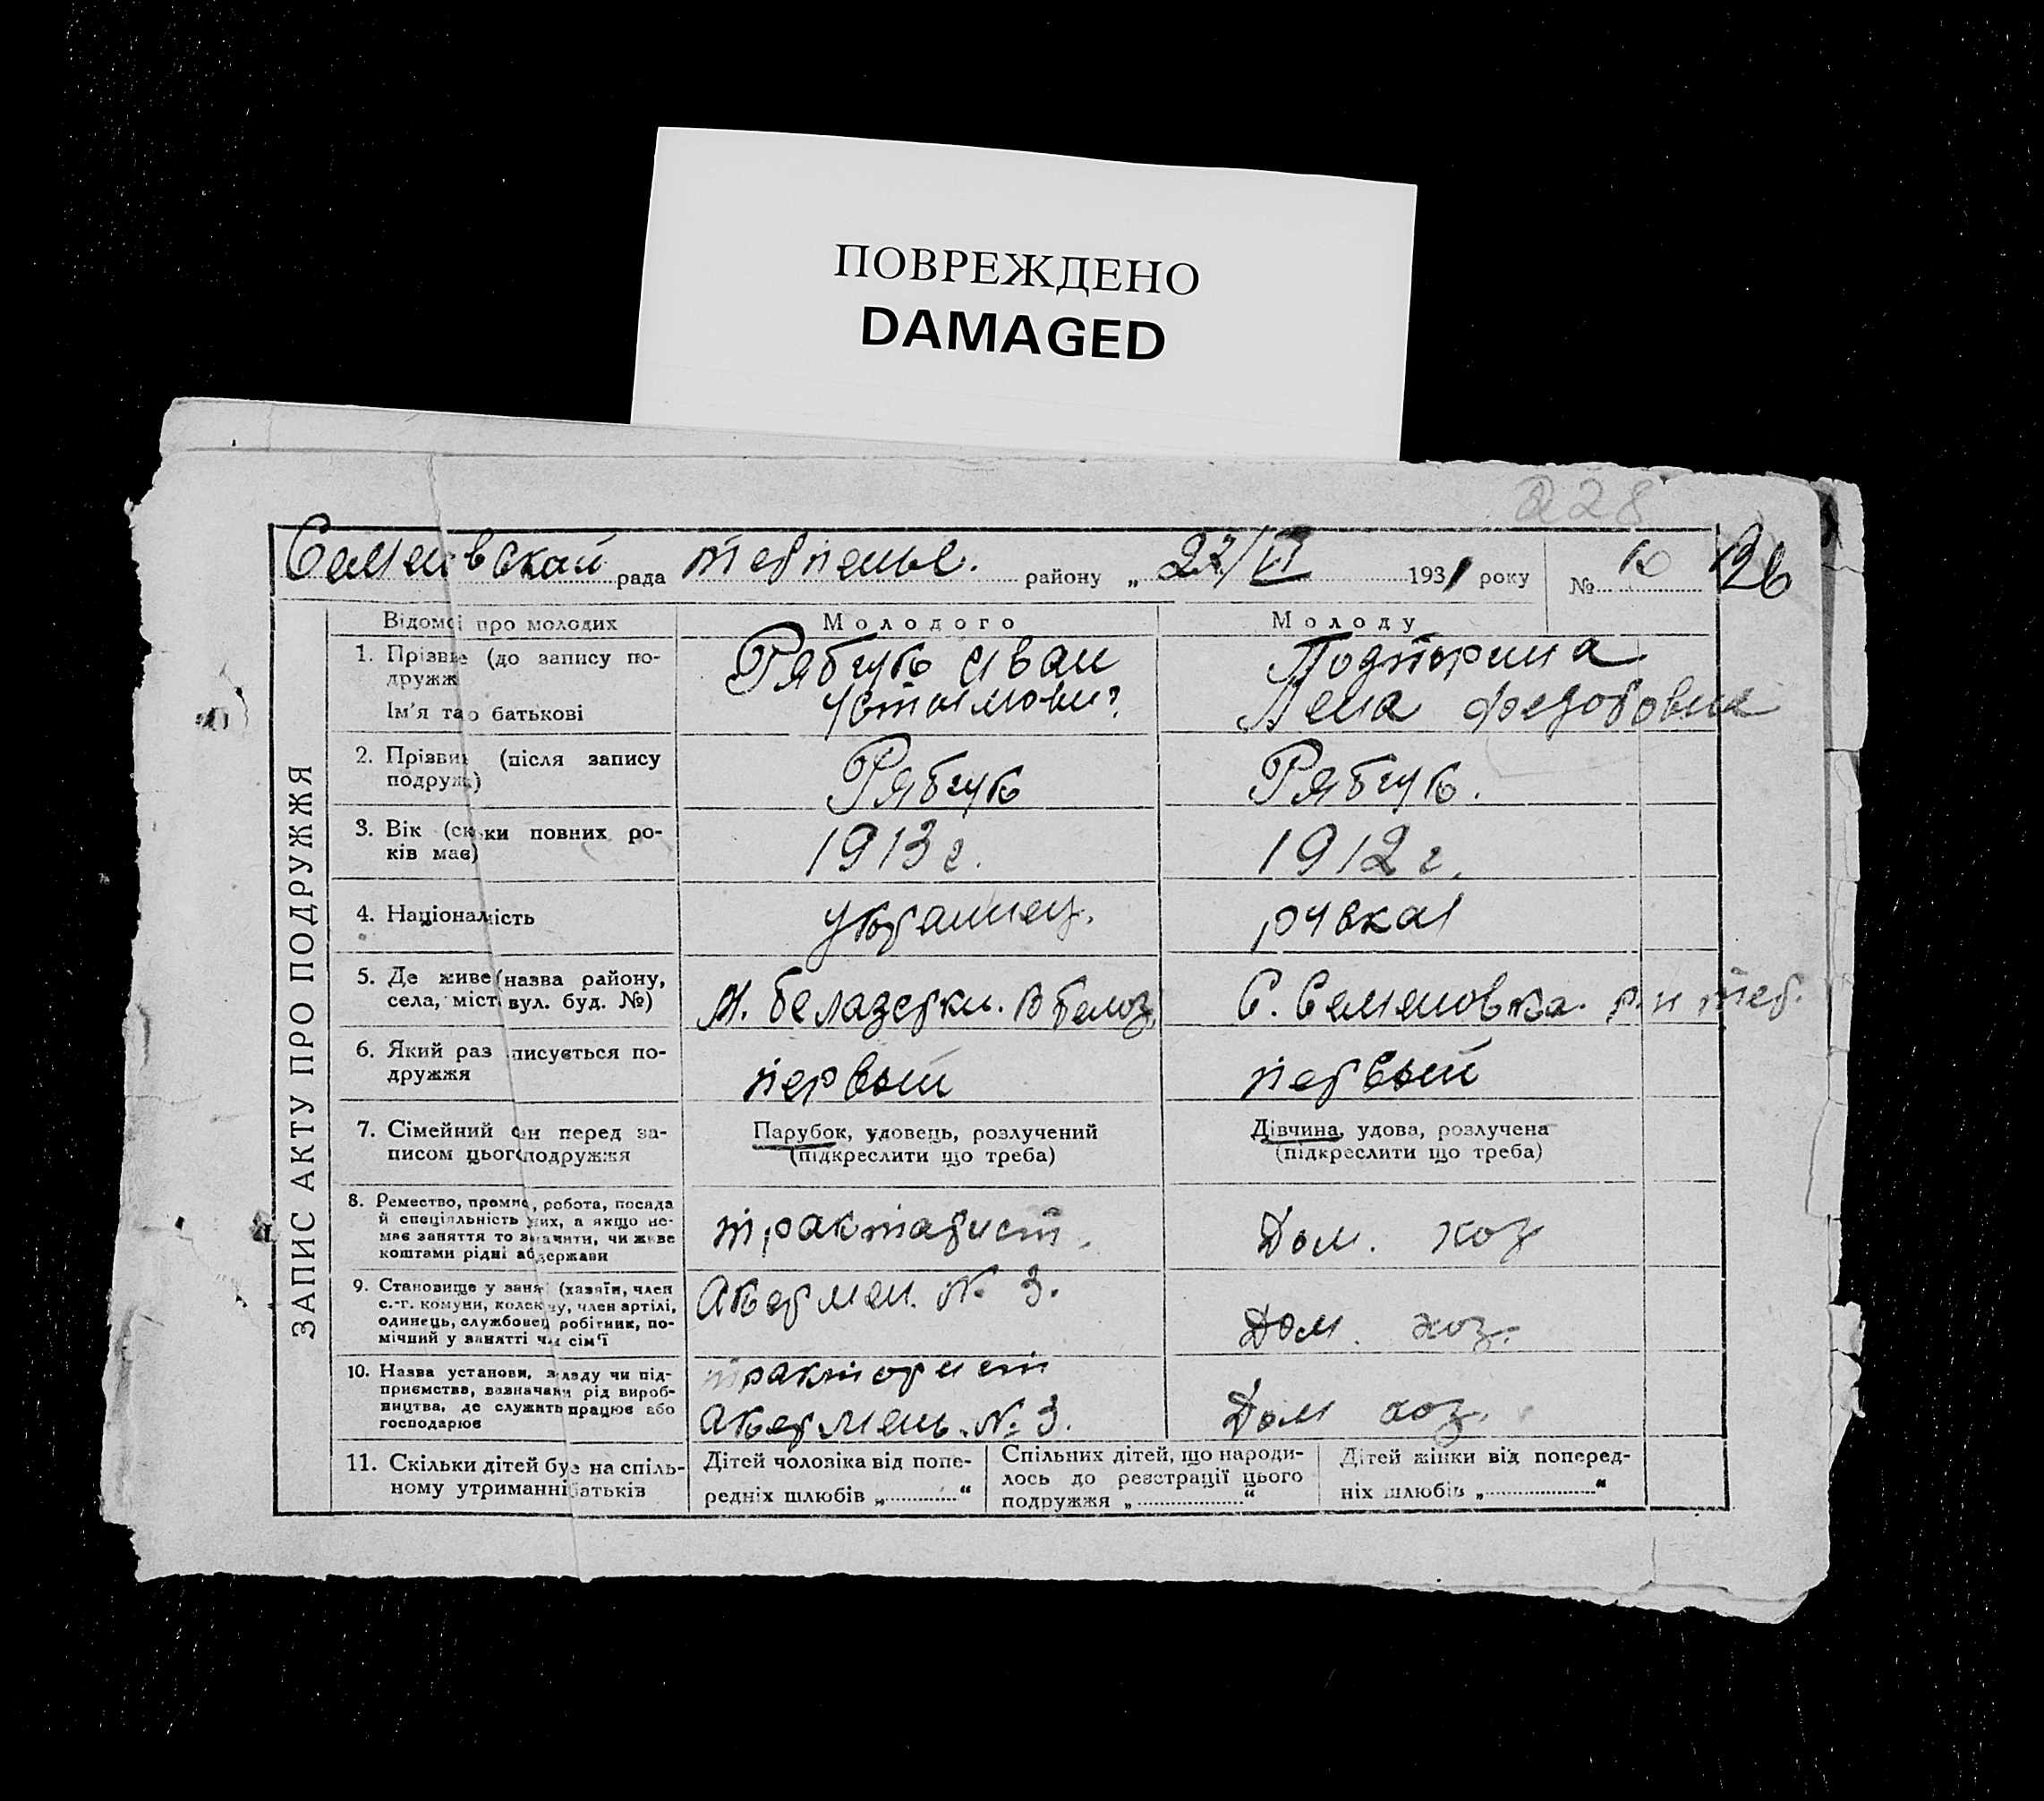 ПОВРЕЖДЕНО
DAMAGED
228
Семеновской рада района. району „ 22/VI 1931 року № 12
Відомості про молодих
Молодого
Молоду
ЗАПИС АКТУ ПРО ПОДРУЖЖЯ
1. Прізвще (до запису по-
дружж
Ім'я та о батькові
Рябчук Иван
Устимови?
Лена Федоровна
2. Прізвищ (після запису
подруж)
Рябчук
Рябчук.
3. Вік (скки повних ро-
ків має)
1913 г.
1912 г.
4. Національність
украинец.
рускаа
5. Де живе (назва району,
села, міст вул. буд. №)
М. Белазерки. В Белоз.
С. Семеновка. р-н
6. Який раз писується по-
дружжя
первый
первый
7. Сімейний ан перед за-
писом цього подружжя
Парубок, удовець, розлучений
(підкреслити що треба)
Дівчина, удова, розлучена
(підкреслити що треба)
8. Ремество, промис, робота, посада
й спеціяльність них, а якщо не-
має заняття то значити, чи живе
коштами рідні аб держави
трактарист.
Дом. хоз
9. Становище у занят (хазяїн, член
с.-г. комуни, колекву, член артілі,
одинець, службовец робітник, по-
мічний у занятті чи сім'ї
Акермен. № 3.
Дом. хоз.
10. Назва установи, закладу чи під-
приємства, зазначаюи рід вироб-
ництва, де служить працює або
господарює
тракторист
Акермень. № 3.
Дом хоз.
11. Скільки дітей буе на спіль-
ному утриманні батьків
Дітей чоловіка від попе-
редніх шлюбів „ “
Спільних дітей, що народи-
лось до реєстрації цього
подружжя „ “
Дітей жінки від поперед-
ніх шлюбів „ “